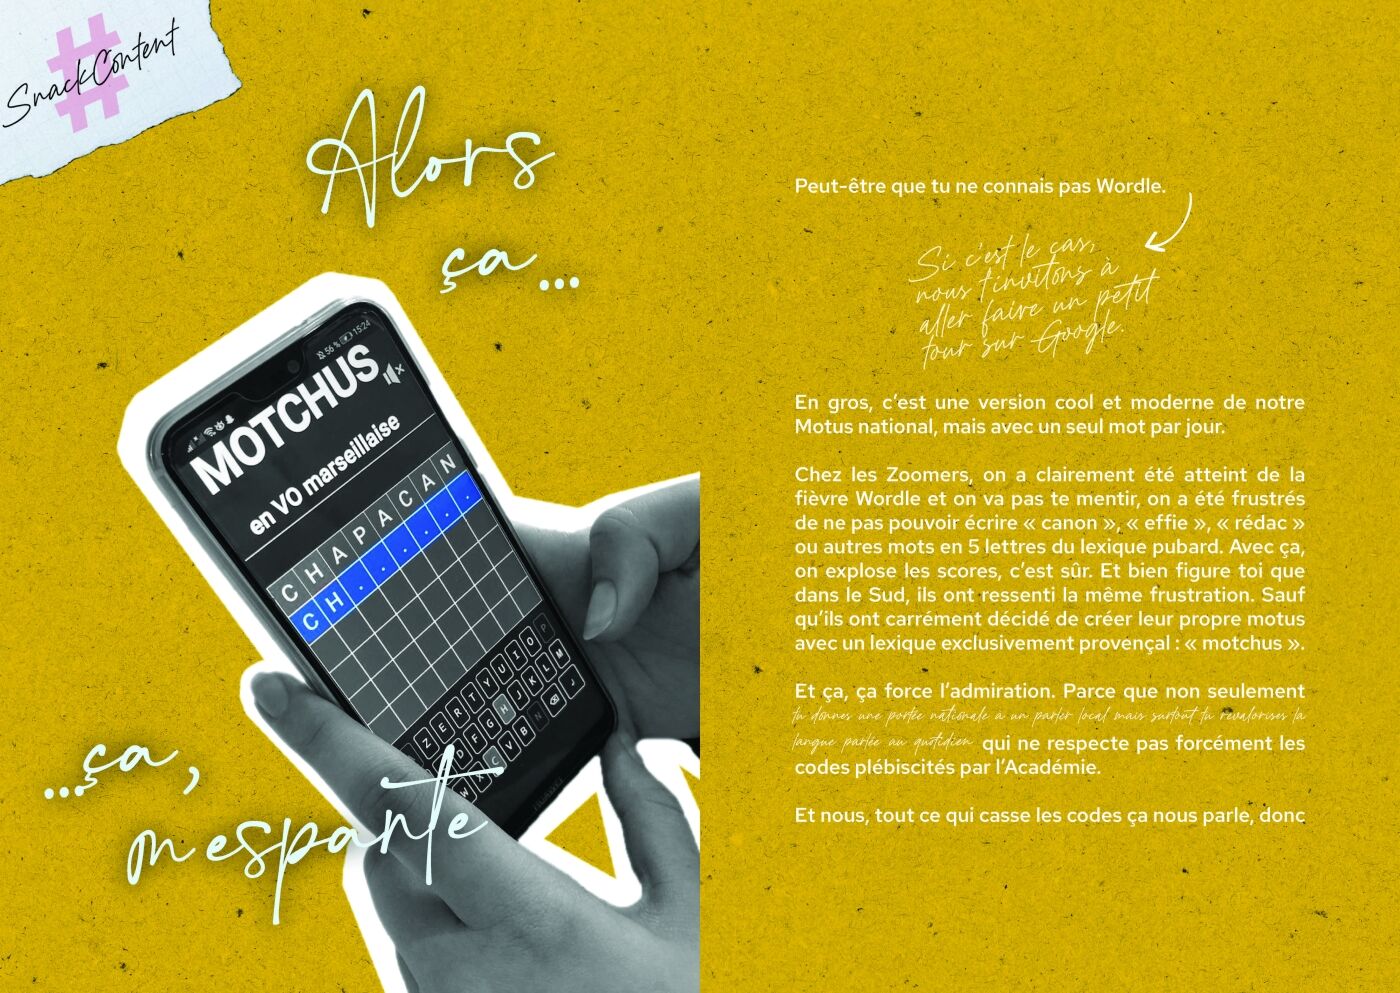 #
SnackContent
Alors
ça...
56 % 15:24
MOTCHUS
en VO marseillaise
C H A P A C A N
C H . . . . . .
A Z E R T Y U I O P
Q S D F G H J K L M
W X C V B N
...ça,
m'esparte
Peut-être que tu ne connais pas Wordle.
Si c'est le cas,
nous t'invitons à
aller faire un petit
tour sur Google.
En gros, c'est une version cool et moderne de notre
Motus national, mais avec un seul mot par jour.
Chez les Zoomers, on a clairement été atteint de la
fièvre Wordle et on va pas te mentir, on a été frustrés
de ne pas pouvoir écrire « canon », « effie », « rédac »
ou autres mots en 5 lettres du lexique pubard. Avec ça,
on explose les scores, c'est sûr. Et bien figure toi que
dans le Sud, ils ont ressenti la même frustration. Sauf
qu'ils ont carrément décidé de créer leur propre motus
avec un lexique exclusivement provençal : « motchus ».
Et ça, ça force l'admiration. Parce que non seulement
tu donnes une portée nationale à un parler local mais surtout tu revalorises la
langue parlée au quotidien qui ne respecte pas forcément les
codes plébiscités par l'Académie.
Et nous, tout ce qui casse les codes ça nous parle, donc